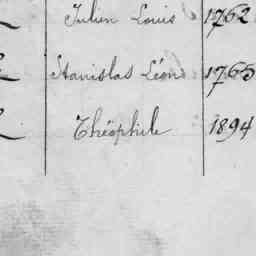 Julien Louis 1762
Stanislas Léon 1765
Théophile 1894